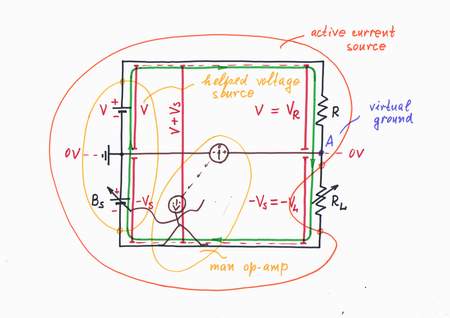 active current
source
helped voltage
source
V
+
-
V
V+Vs
V = VR
R
virtual
ground
A
0V
0V
Bs
+
-
-Vs
-Vs=-VL
RL
man op-amp